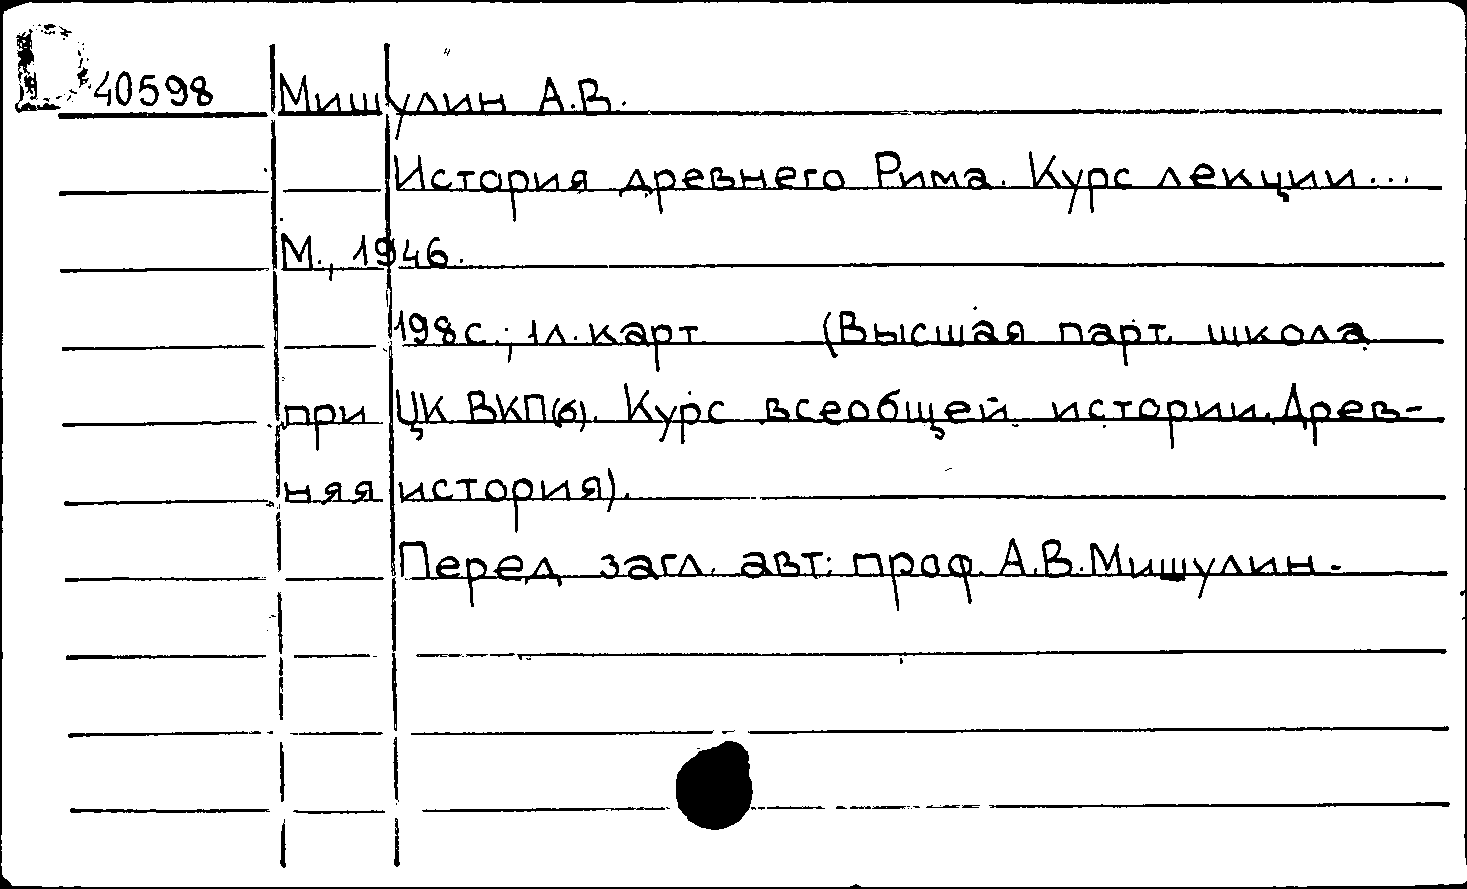 D 40598 Мишулин А.В.
История древнего Рима. Курс лекции...
М., 1946.
198с.; 1л. карт (Высшая парт. школа
при ЦК ВКП(б). Курс всеобщей истории. Древ-
няя история).
Перед загл. авт: проф. А.В.Мишулин.